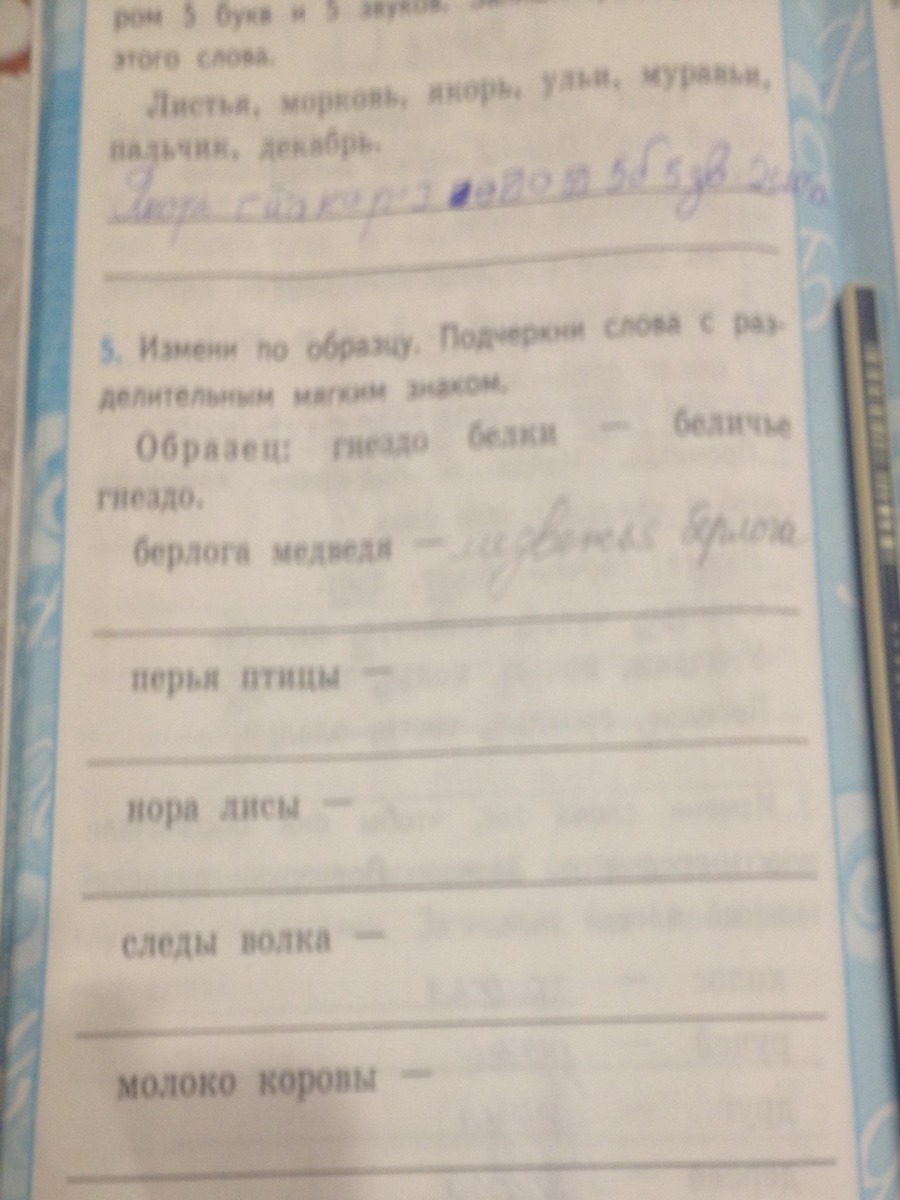 ром 5 букв и 5 звуков.
этого слова.
Листья, морковь, якорь, ульи, муравьи,
пальчик, декабрь.
Якорь 5б 5зв
5. Измени по образцу. Подчеркни слова с раз-
делительным мягким знаком.
Образец: гнездо белки — беличье
гнездо.
берлога медведя — медвежья берлога
перья птицы —
нора лисы —
следы волка —
молоко коровы —